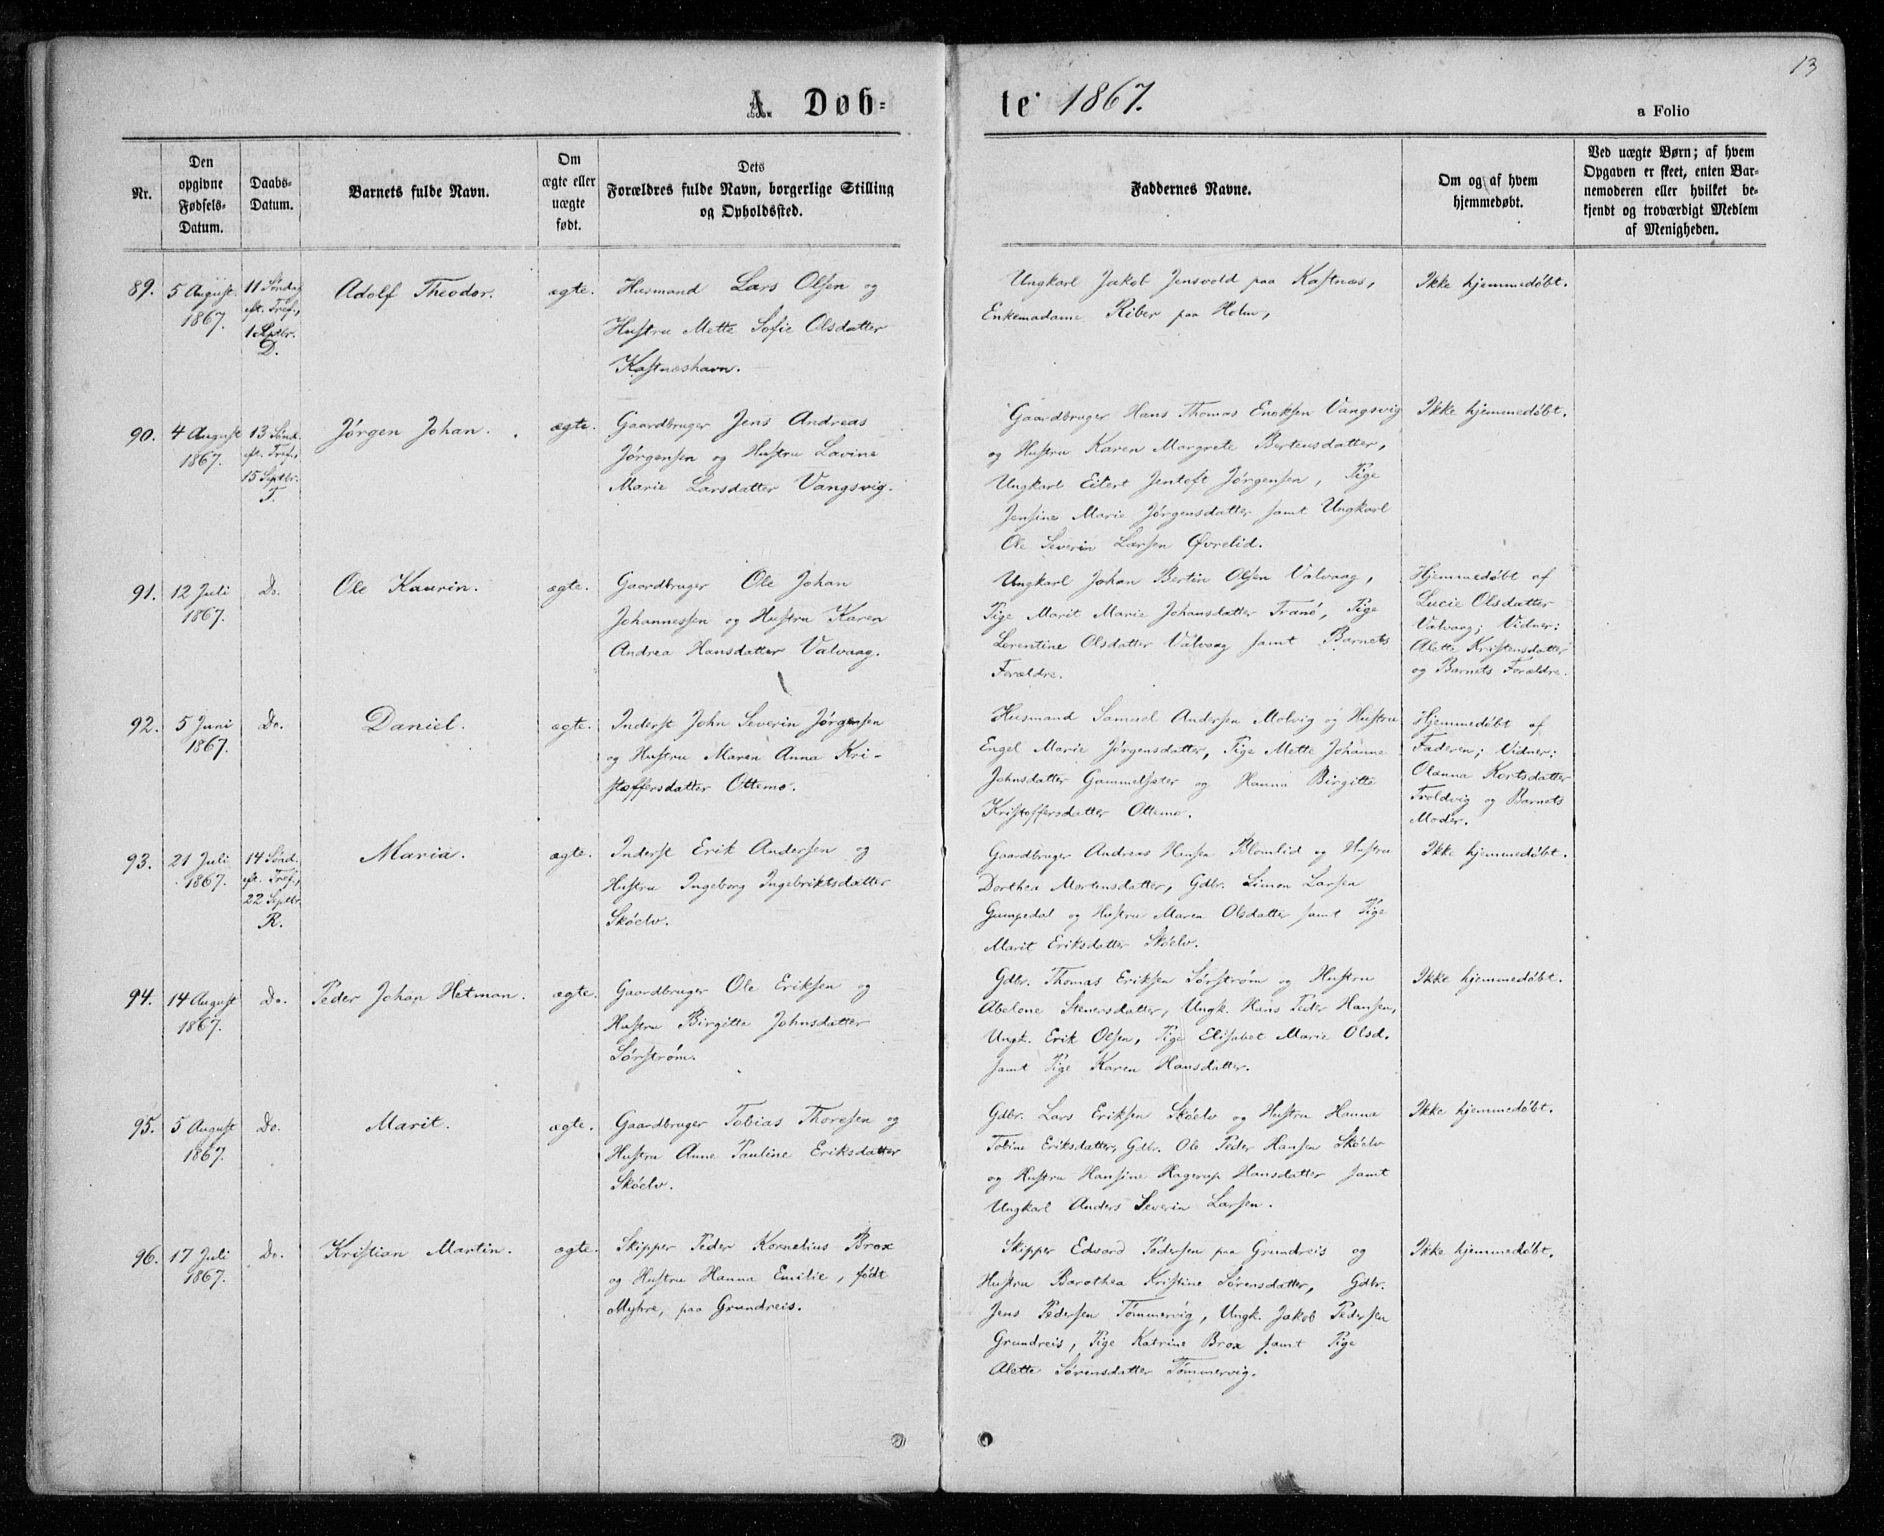 13
A. Døb-
te 1867.
a Folio
Nr.
Den
opgivne
Fødsels-
Datum.
Daabs-
Datum.
Barnets fulde Navn.
Om
ægte eller
uægte
født.
Dets
Forældres fulde Navn, borgerlige Stilling
og Opholdssted.
Faddernes Navne.
Om og af hvem
hjemmedøbt.
Ved uægte Børn; af hvem
Opgaven er skeet, enten Bar-
nemoderen eller hvilket be-
kjendt og troværdigt Medlem
af Menigheden.
89.
5 August
1867.
11 Søndag
eft. Tref.,
1 Septbr.
D.
Adolf Theodor.
ægte.
Husmand Lars Olsen og
Hustru Mette Sofie Olsdatter
Kastnæshavn.
Ungkarl Jakob Jensvold paa Kastnæs,
Enkemadame Riber paa Holm,
Ikke hjemmedøbt.
90.
4 August
1867.
13 Sønd.
eft. Tref.,
15 Septbr.
T.
Jørgen Johan.
ægte.
Gaardbruger Jens Andreas
Jørgensen og Hustru Lavine
Marie Larsdatter Vangsvig.
Gaardbruger Hans Thomas Enoksen Vangsvig
og Hustru Karen Margrete Bertensdatter,
Ungkarl Eilert Jentoft Jørgensen, Pige
Jensine Marie Jørgensdatter samt Ungkarl
Ole Severin Larsen Øvrelid.
Ikke hjemmedøbt.
91.
12 Juli
1867.
Do.
Ole Kaurin.
ægte.
Gaardbruger Ole Johan
Johannessen og Hustru Karen
Andrea Hansdatter Valvaag.
Ungkarl Johan Bertin Olsen Valvaag,
Pige Marit Marie Johansdatter Tranø, Pige
Lorentine Olsdatter Valvaag samt Barnets
Forældre.
Hjemmedøbt af
Lucie Olsdatter
Valvaag; Vidner:
Alette Kristensdatter
og Barnets Forældre.
92.
5 Juni
1867.
Do.
Daniel.
ægte.
Inderst John Severin Jørgensen
og Hustru Maren Anna Kri-
stoffersdatter Ottemo.
Husmand Samuel Andersen Molvig og Hustru
Engel Marie Jørgensdatter, Pige Mette Johanne
Johnsdatter Gammelsæter og Hanna Birgitte
Kristoffersdatter Ottemo.
Hjemmedøbt af
Faderen; Vidner:
Olanna Kortsdatter
Troldvig og Barnets
Moder.
93.
21 Juli
1867.
14 Sønd.
eft. Tref.,
22 Septbr.
R.
Maria.
ægte.
Inderst Erik Andersen og
Hustru Ingeborg Ingebriktsdatter
Skøelv.
Gaardbruger Andreas Hansen Blomlid og Hustru
Dorthea Mortensdatter, Gdbr. Simon Larsen
Gumpedal og Hustru Maren Olsdatter samt Pige
Marit Eriksdatter Skøelv.
Ikke hjemmedøbt.
94.
14 August
1867.
Do.
Peder Johan Hetman.
ægte.
Gaardbruger Ole Eriksen og
Hustru Birgitte Johnsdatter
Sørstrøm.
Gdbr. Thomas Eriksen Sørstrøm og Hustru
Abelone Stenersdatter, Ungk. Hans Peder Hansen,
Ungk. Erik Olsen, Pige Elisabet Marie Olsd.
samt Pige Karen Hansdatter.
Ikke hjemmedøbt.
95.
5 August
1867.
Do.
Marit.
ægte.
Gaardbruger Tobias Thoresen og
Hustru Anne Pauline Eriksdatter
Skøelv.
Gdbr. Lars Eriksen Skøelv og Hustru Hanna
Tobine Eriksdatter, Gdbr. Ole Peder Hansen Skøelv
og Hustru Hansine Hagerup Hansdatter samt
Ungkarl Anders Severin Larsen.
Ikke hjemmedøbt.
96.
17 Juli
1867.
Do.
Kristian Martin.
ægte.
Skipper Peder Kornelius Brox
og Hustru Hanna Emilie, født
Myhre, paa Grundreis.
Skipper Edvard Pedersen paa Grundreis og
Hustru Barothea Kristine Sørensdatter, Gdbr.
Jens Pedersen Tømmervig, Ungk. Jakob Pedersen
Grundreis, Pige Katrine Brox samt Pige
Alette Sørensdatter Tømmervig.
Ikke hjemmedøbt.